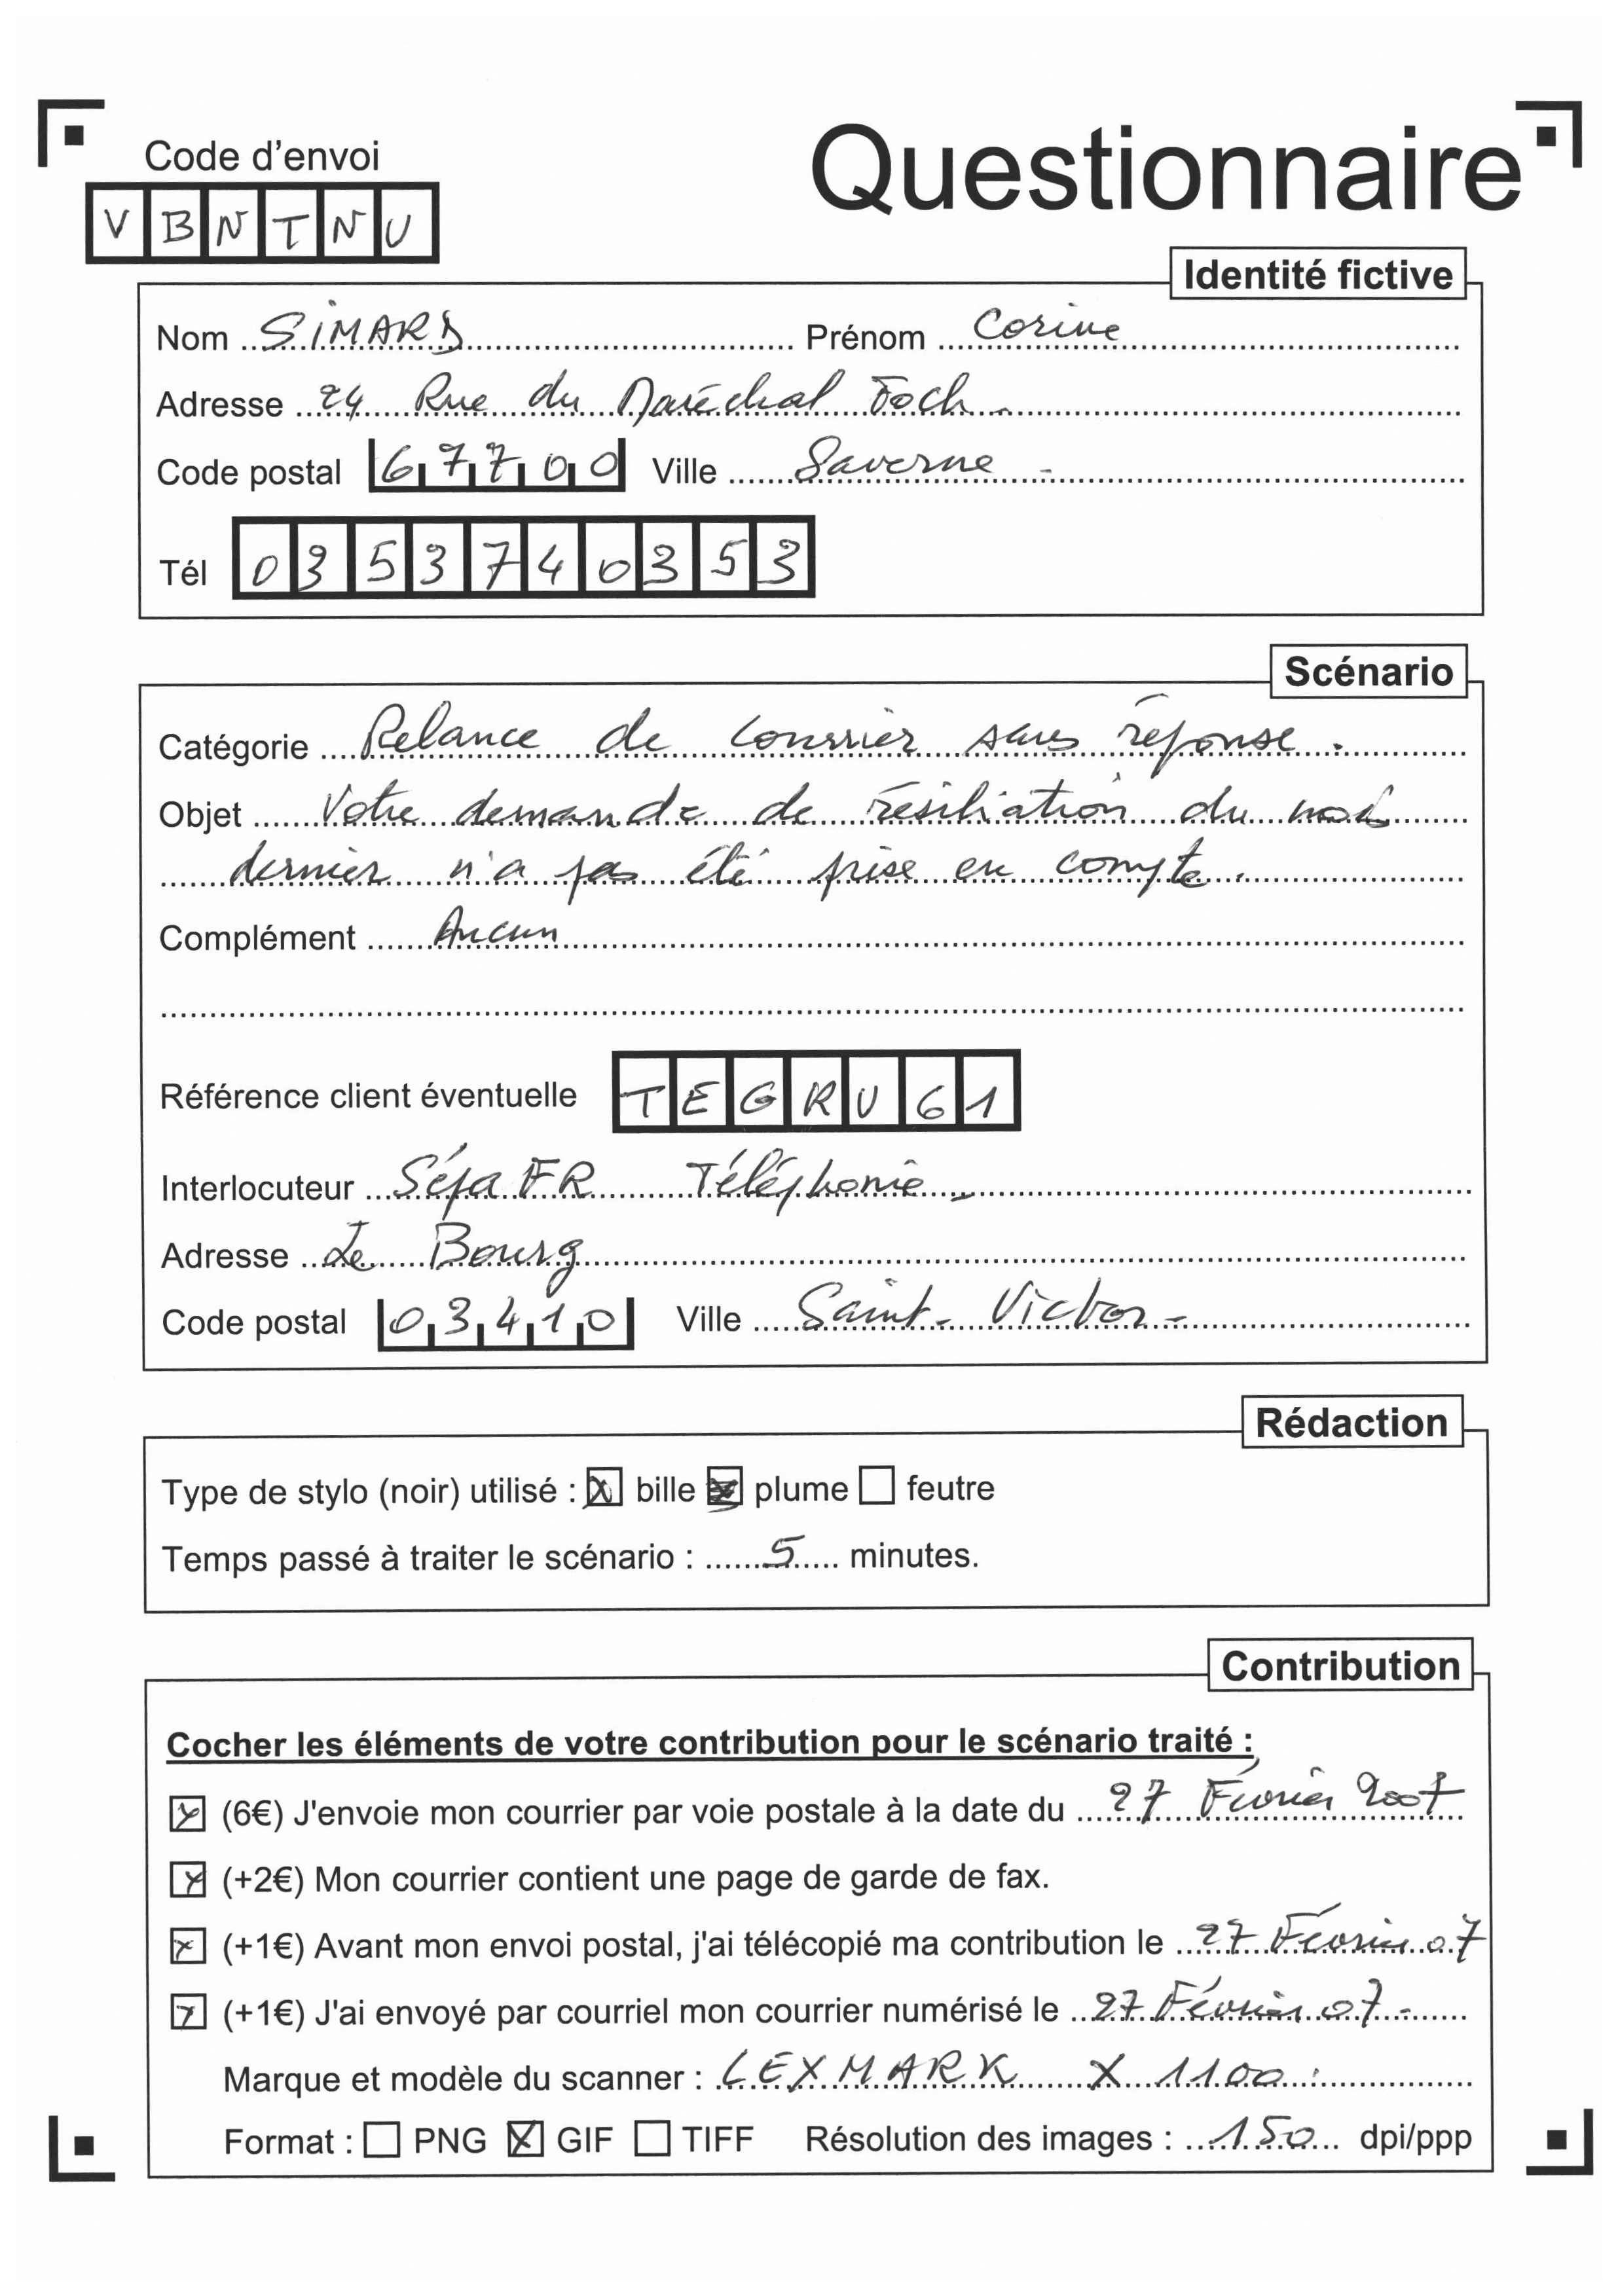 Code d'envoi
Questionnaire
VBNTNU
Identité fictive
Nom SIMARD Prénom Corine
Adresse 24 Rue du Maréchal Foch.
Code postal 67700 Ville Saverne -
Tél 0353740353
Scénario
Catégorie Relance de courrier sans réponse.
Objet Votre demande de résiliation du mois
dernier n'a pas été prise en compte.
Complément Aucun
Référence client éventuelle TEGRU61
Interlocuteur SépaFR Téléphonie -
Adresse Le Bourg
Code postal 03410 Ville Saint-Victor -
Rédaction
Type de stylo (noir) utilisé : bille plume feutre
Temps passé à traiter le scénario : 5 minutes.
Contribution
Cocher les éléments de votre contribution pour le scénario traité :
(6€) J'envoie mon courrier par voie postale à la date du 27 Février 2007
(+2€) Mon courrier contient une page de garde de fax.
(+1€) Avant mon envoi postal, j'ai télécopié ma contribution le 27 Février 07
(+1€) J'ai envoyé par courriel mon courrier numérisé le 27 Février 07 -
Marque et modèle du scanner : LEXMARK X 1100.
Format : PNG GIF TIFF Résolution des images : 150 dpi/ppp